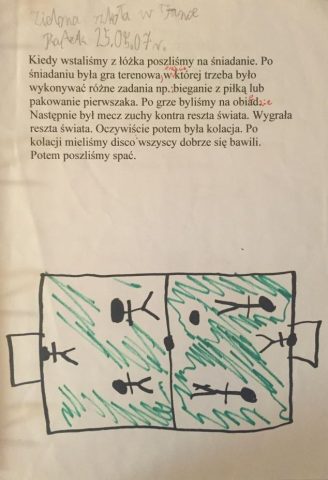 Zielona szkoła w
25.05.07 r.
Kiedy wstaliśmy z łóżka poszliśmy na śniadanie. Po
śniadaniu była gra terenowa,w której trzeba było
wykonywać różne zadania np.:bieganie z piłką lub
pakowanie pierwszaka. Po grze byliśmy na obiad.
Następnie był mecz zuchy kontra reszta świata. Wygrała
reszta świata. Oczywiście potem była kolacja. Po
kolacji mieliśmy disco wszyscy dobrze się bawili.
Potem poszliśmy spać.